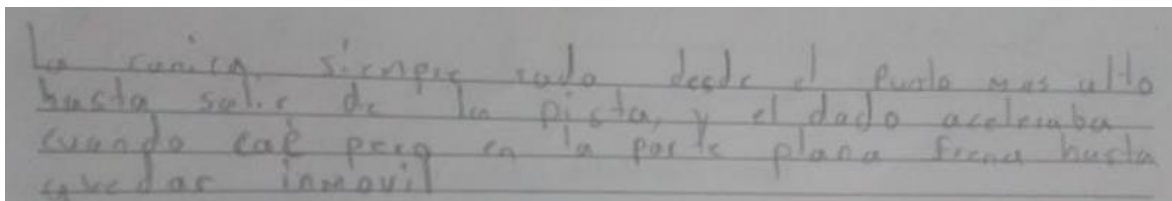 La canica siempre rodo desde el punto mas alto
hasta salir de la pista, y el dado aceleraba
cuando cae pero en la parte plana frena hasta
quedar inmovil